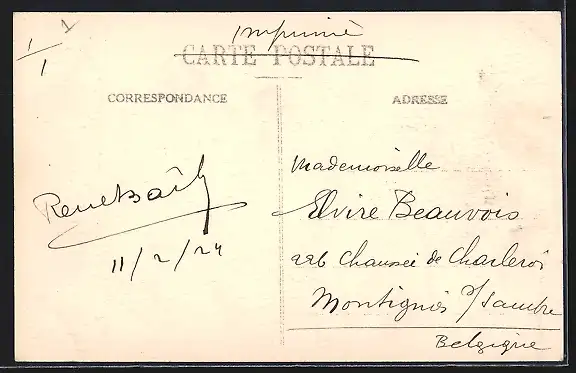 1/1
1
Imprimé
CARTE POSTALE
CORRESPONDANCE
ADRESSE
Mademoiselle
Elvire Beauvois
226 Chaussée de Charleroi
Montignies s/Sambre
Belgique
11/2/24